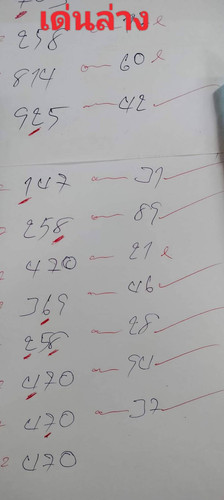 เด่นล่าง
258
814 60 l
925 42
147 31
258 89
470 21 l
369 46
258 28
470 94
470 37
470